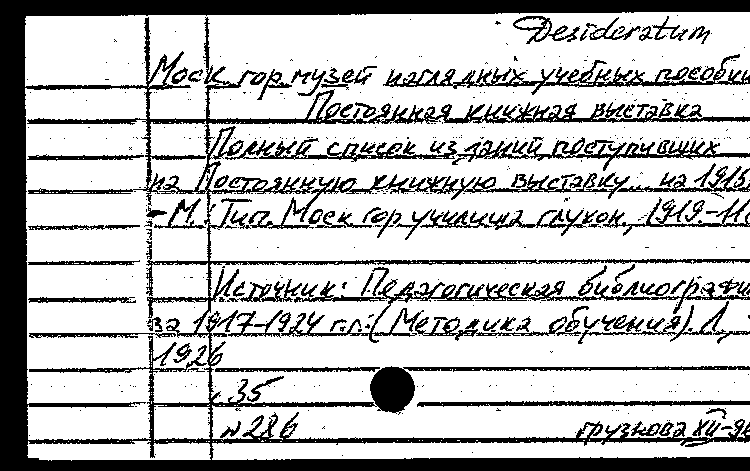 Desideratum
Моск гор музей наглядных учебных пособи
Постоянная книжная выставка
Полный список изданий, поступивших
на Постоянную книжную выставку... на 1918
-М.: Тип. Моск гор училища глухон., 1919.-11
Источник: Педагогическая библиографи
за 1917-1924 г.г.: (Методика обучения). Л.,
1926
с.35
№286
грузнова XII-96